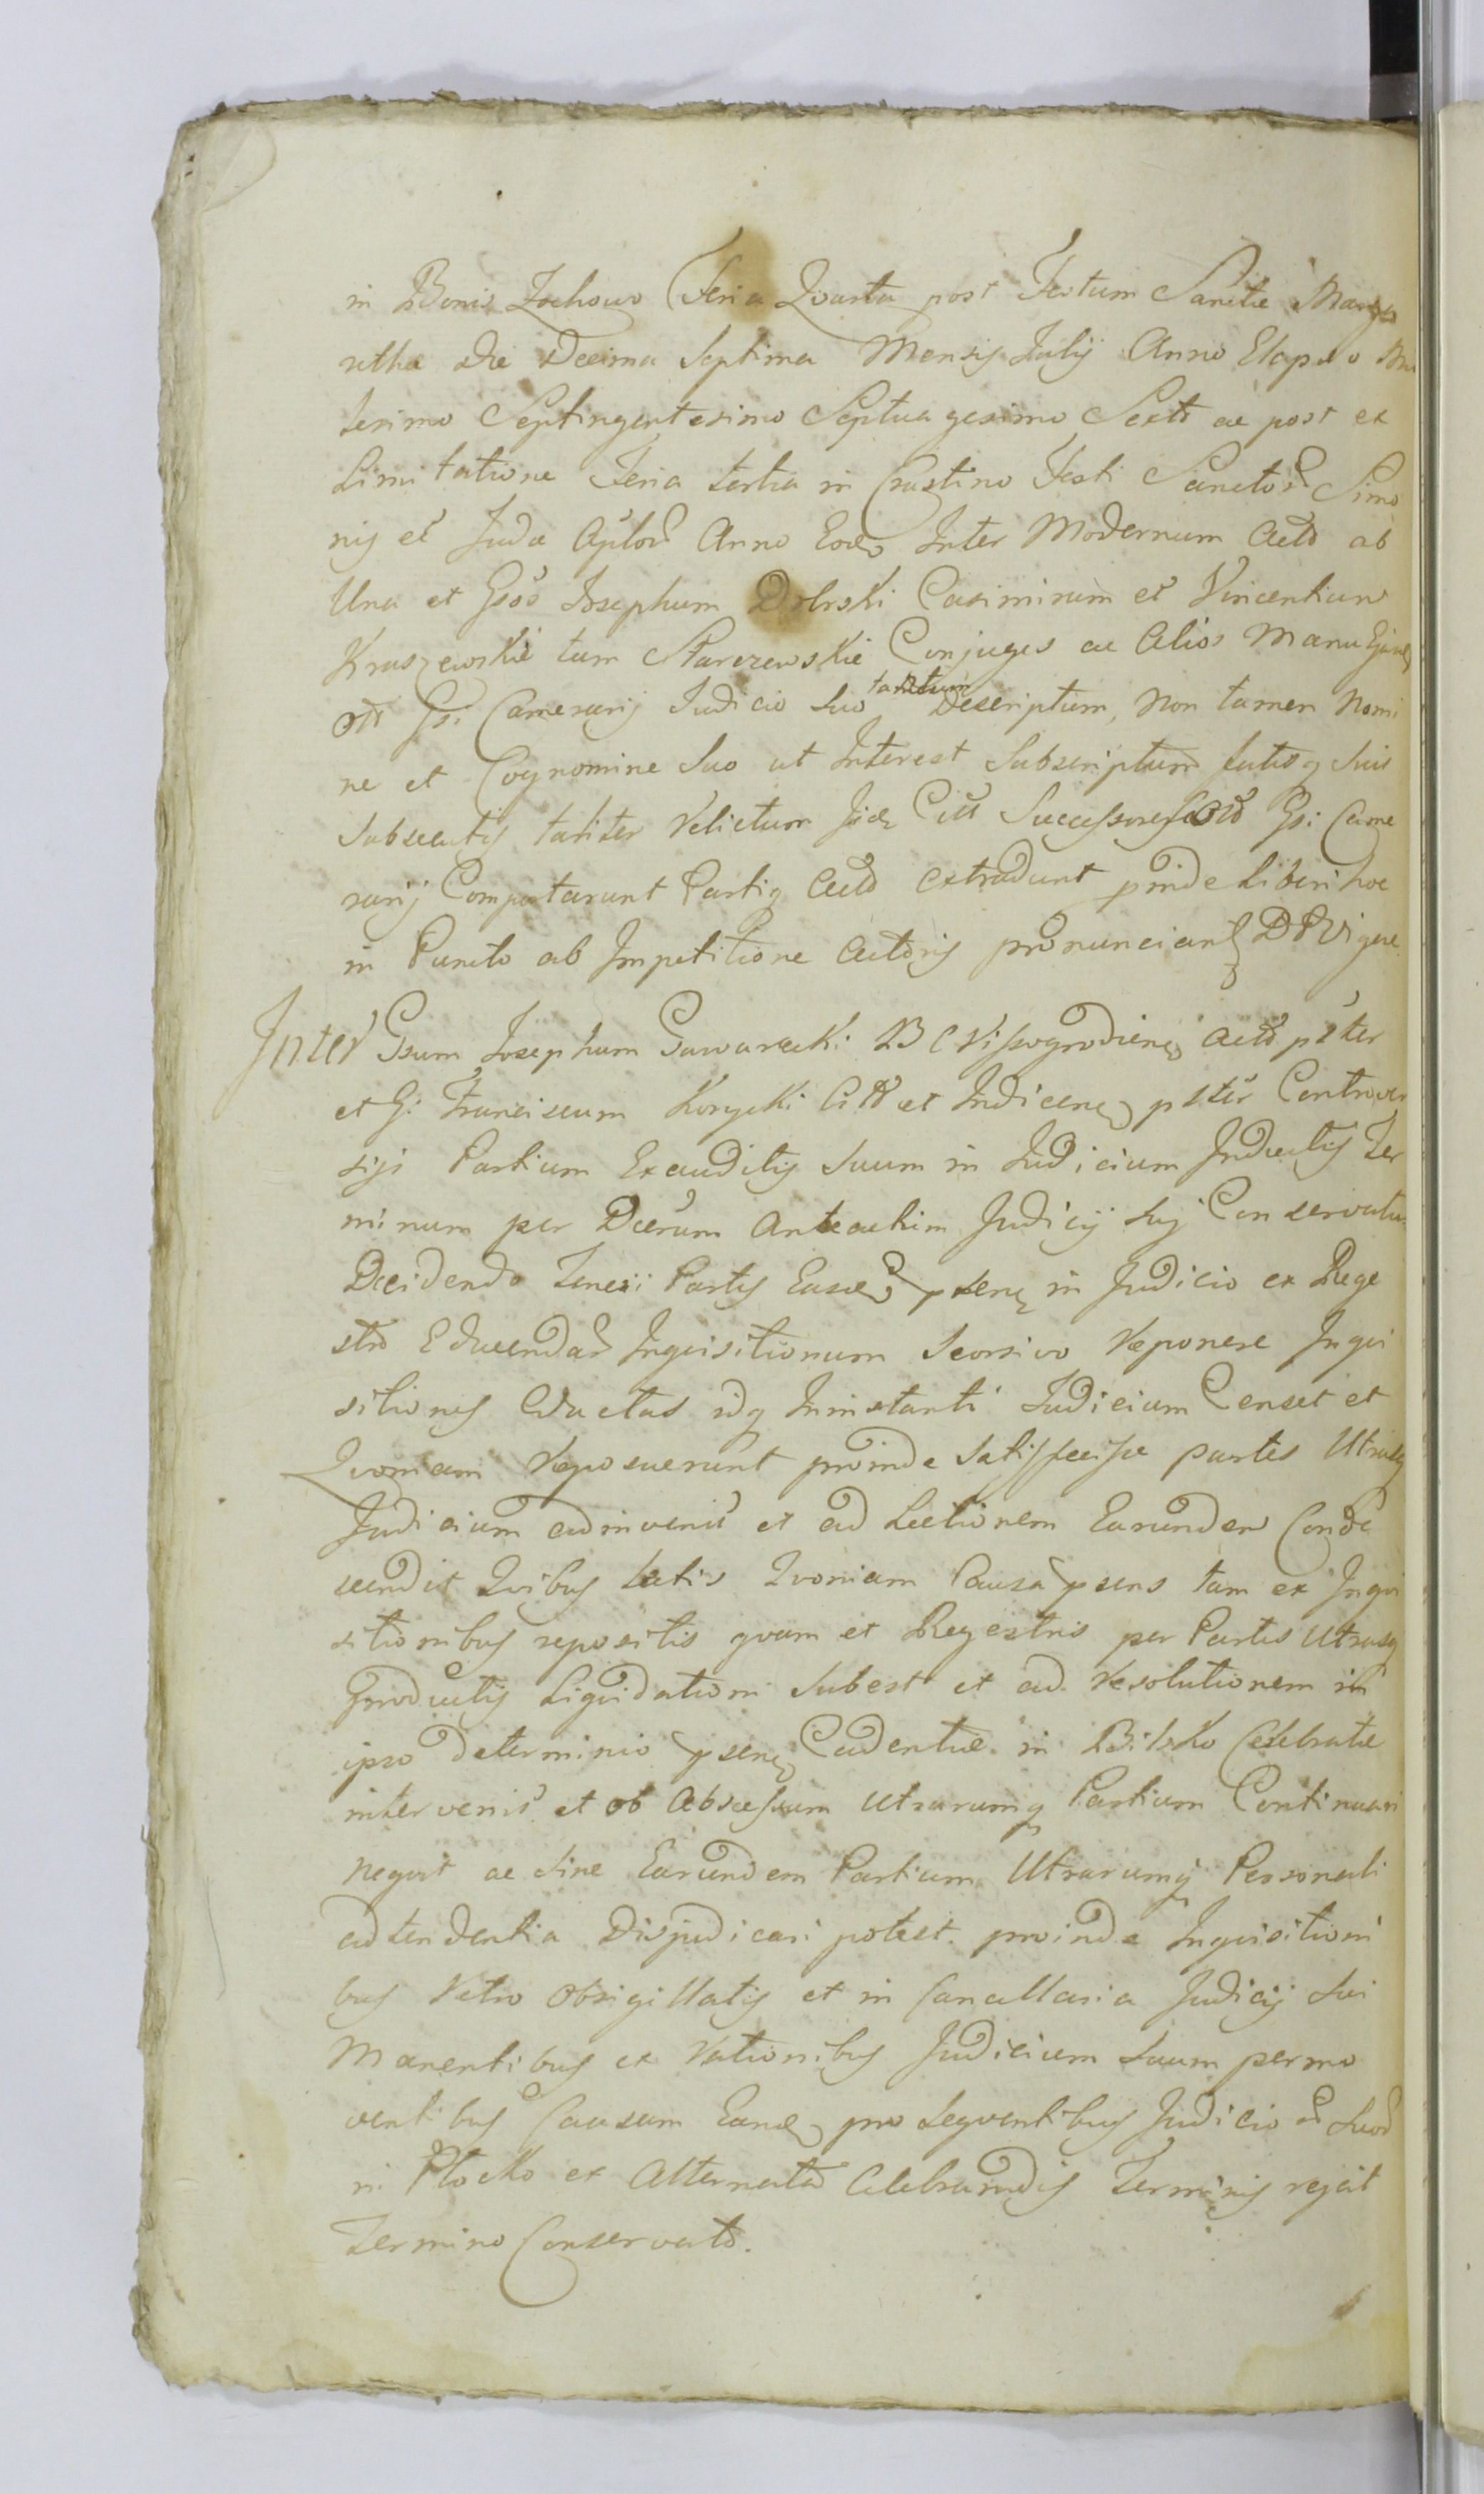 in Bonis Zochowo Feria Qvarta post Festum Sanctæ Marga
rethæ die Decima Septima Mensis Julij Anno Elapso Mi
lesimo Septingentesimo Septuagesimo Sexto ac post ex
Limitatione Feria tertia in Crastino Festi Sanctor Simo
nis et Juda Aplor Anno Eodē Inter Modernum Actō ab
Una et Gsōs Josephum Dobrski Casimirum et Vincentium
Kraszewskie tum Starczewskie Conjuges ac Alios Manu Ejusdē
olī Gsi Camerarij Judicio Suo tantum Descriptum, Non tamen Nomi
ne et Cognomine Suo ut Interest Subscriptum fatisq Suis
Subsecutis taliter Relictum Jidē Citī Successores Gsi Came
rarij Comportarunt Partiq Actō extradunt proinde Liberi hoc
in Puncto ab Impetitione Actoris pronunciantʳ DPVigore
Inter Gsum Josephum Gawarecki BC Vissogrodienē Actō pster
et G: Franciscum Koryckí Cittō et Indicenē pster Controver
sijs Partium Exauditis Suum in Judicium Inductis Ter
minum per Dcrum Anteactum Judicij Suj Conservatum
Decidendo Teneri Partes Easdē psenē in Judicio ex Rege
stro Educendar Inquisitionum Seorsivo Reponere Inqvi
sitiones Eductas idq Ininstanti Judicium Censet et
Qvoniam Reposuerunt proinde Satisfecisse partes Utrasq
Judicium adinvenit et ad Lectionem Earundem Conde
scendit Qvibus Lectis Qvoniam Causa psens tam ex Inqvi
sitionibus repositis qvam et Regestris per Partes Utrasq
productis Liqvidationi Subest et ad Resolutionem in
ipso determinio psenē Cadentiæ in Bilsko Celebratæ
intervenit et ob Abscessum Utrarumq Partium Continuari
neqvit ac Sine Earundem Partium Utrarumq Personali
adtendentia Disjudicari potest proinde Inqvisitioni
bus Retro Obsigillatis et in Cancellaria Judicij Sui
Manentibus ex Rationibus Judicium Suum permo
ventibus Causam Eandē pro Seqventibus Judicior Suor
in Plocko ex Alternata Celebrandis Terminis rejcit
Termino Conservato.